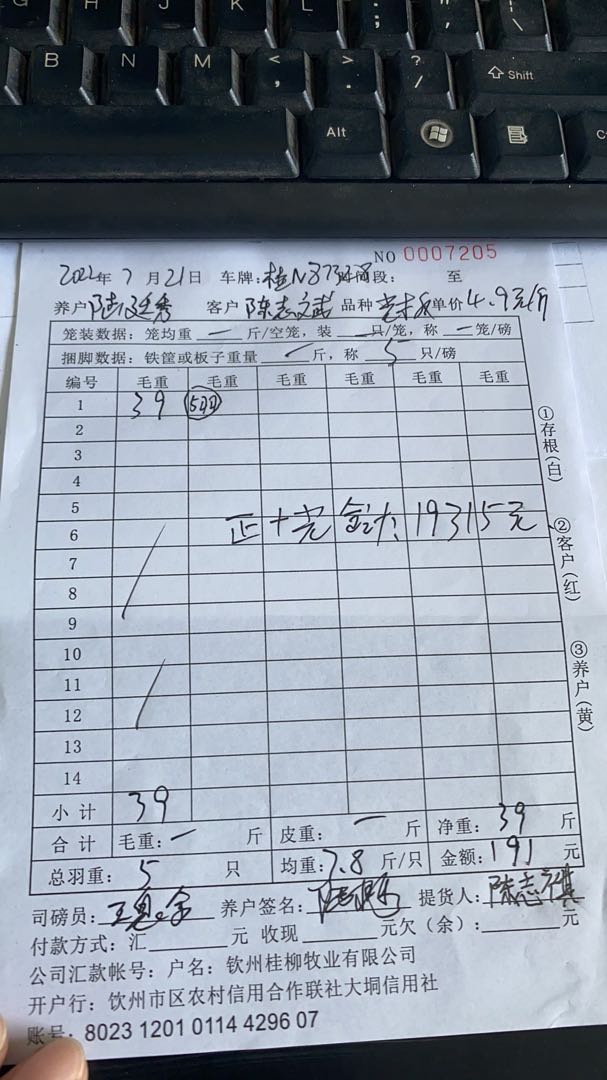 K L : ;
B N M < , > . ? / ⇧ Shift
Alt
NO 0007205
2022年 7 月 21日 车牌: 桂N 时间段: 至
养户 客户 陈志 品种 单价 4.9元/斤
笼装数据: 笼均重 一 斤/空笼, 装 一 只/笼, 称 一 笼/磅
捆脚数据: 铁筐或板子重量 一 斤, 称 5 只/磅
编号 毛重 毛重 毛重 毛重 毛重 毛重
1 39 5羽
2
3
4
5
6 正+ 合计: 19315元
7
8
9
10
11
12
13
14
①存根(白)
②客户(红)
③养户(黄)
小计 39
合计 毛重: 一 斤 皮重: 一 斤 净重: 39 斤
总羽重: 5 只 均重: 7.8 斤/只 金额: 191 元
司磅员: 养户签名: 提货人: 陈志
付款方式: 汇 元 收现 元欠(余): 元
公司汇款帐号: 户名: 钦州桂柳牧业有限公司
开户行: 钦州市区农村信用合作联社大垌信用社
账号: 8023 1201 0114 4296 07